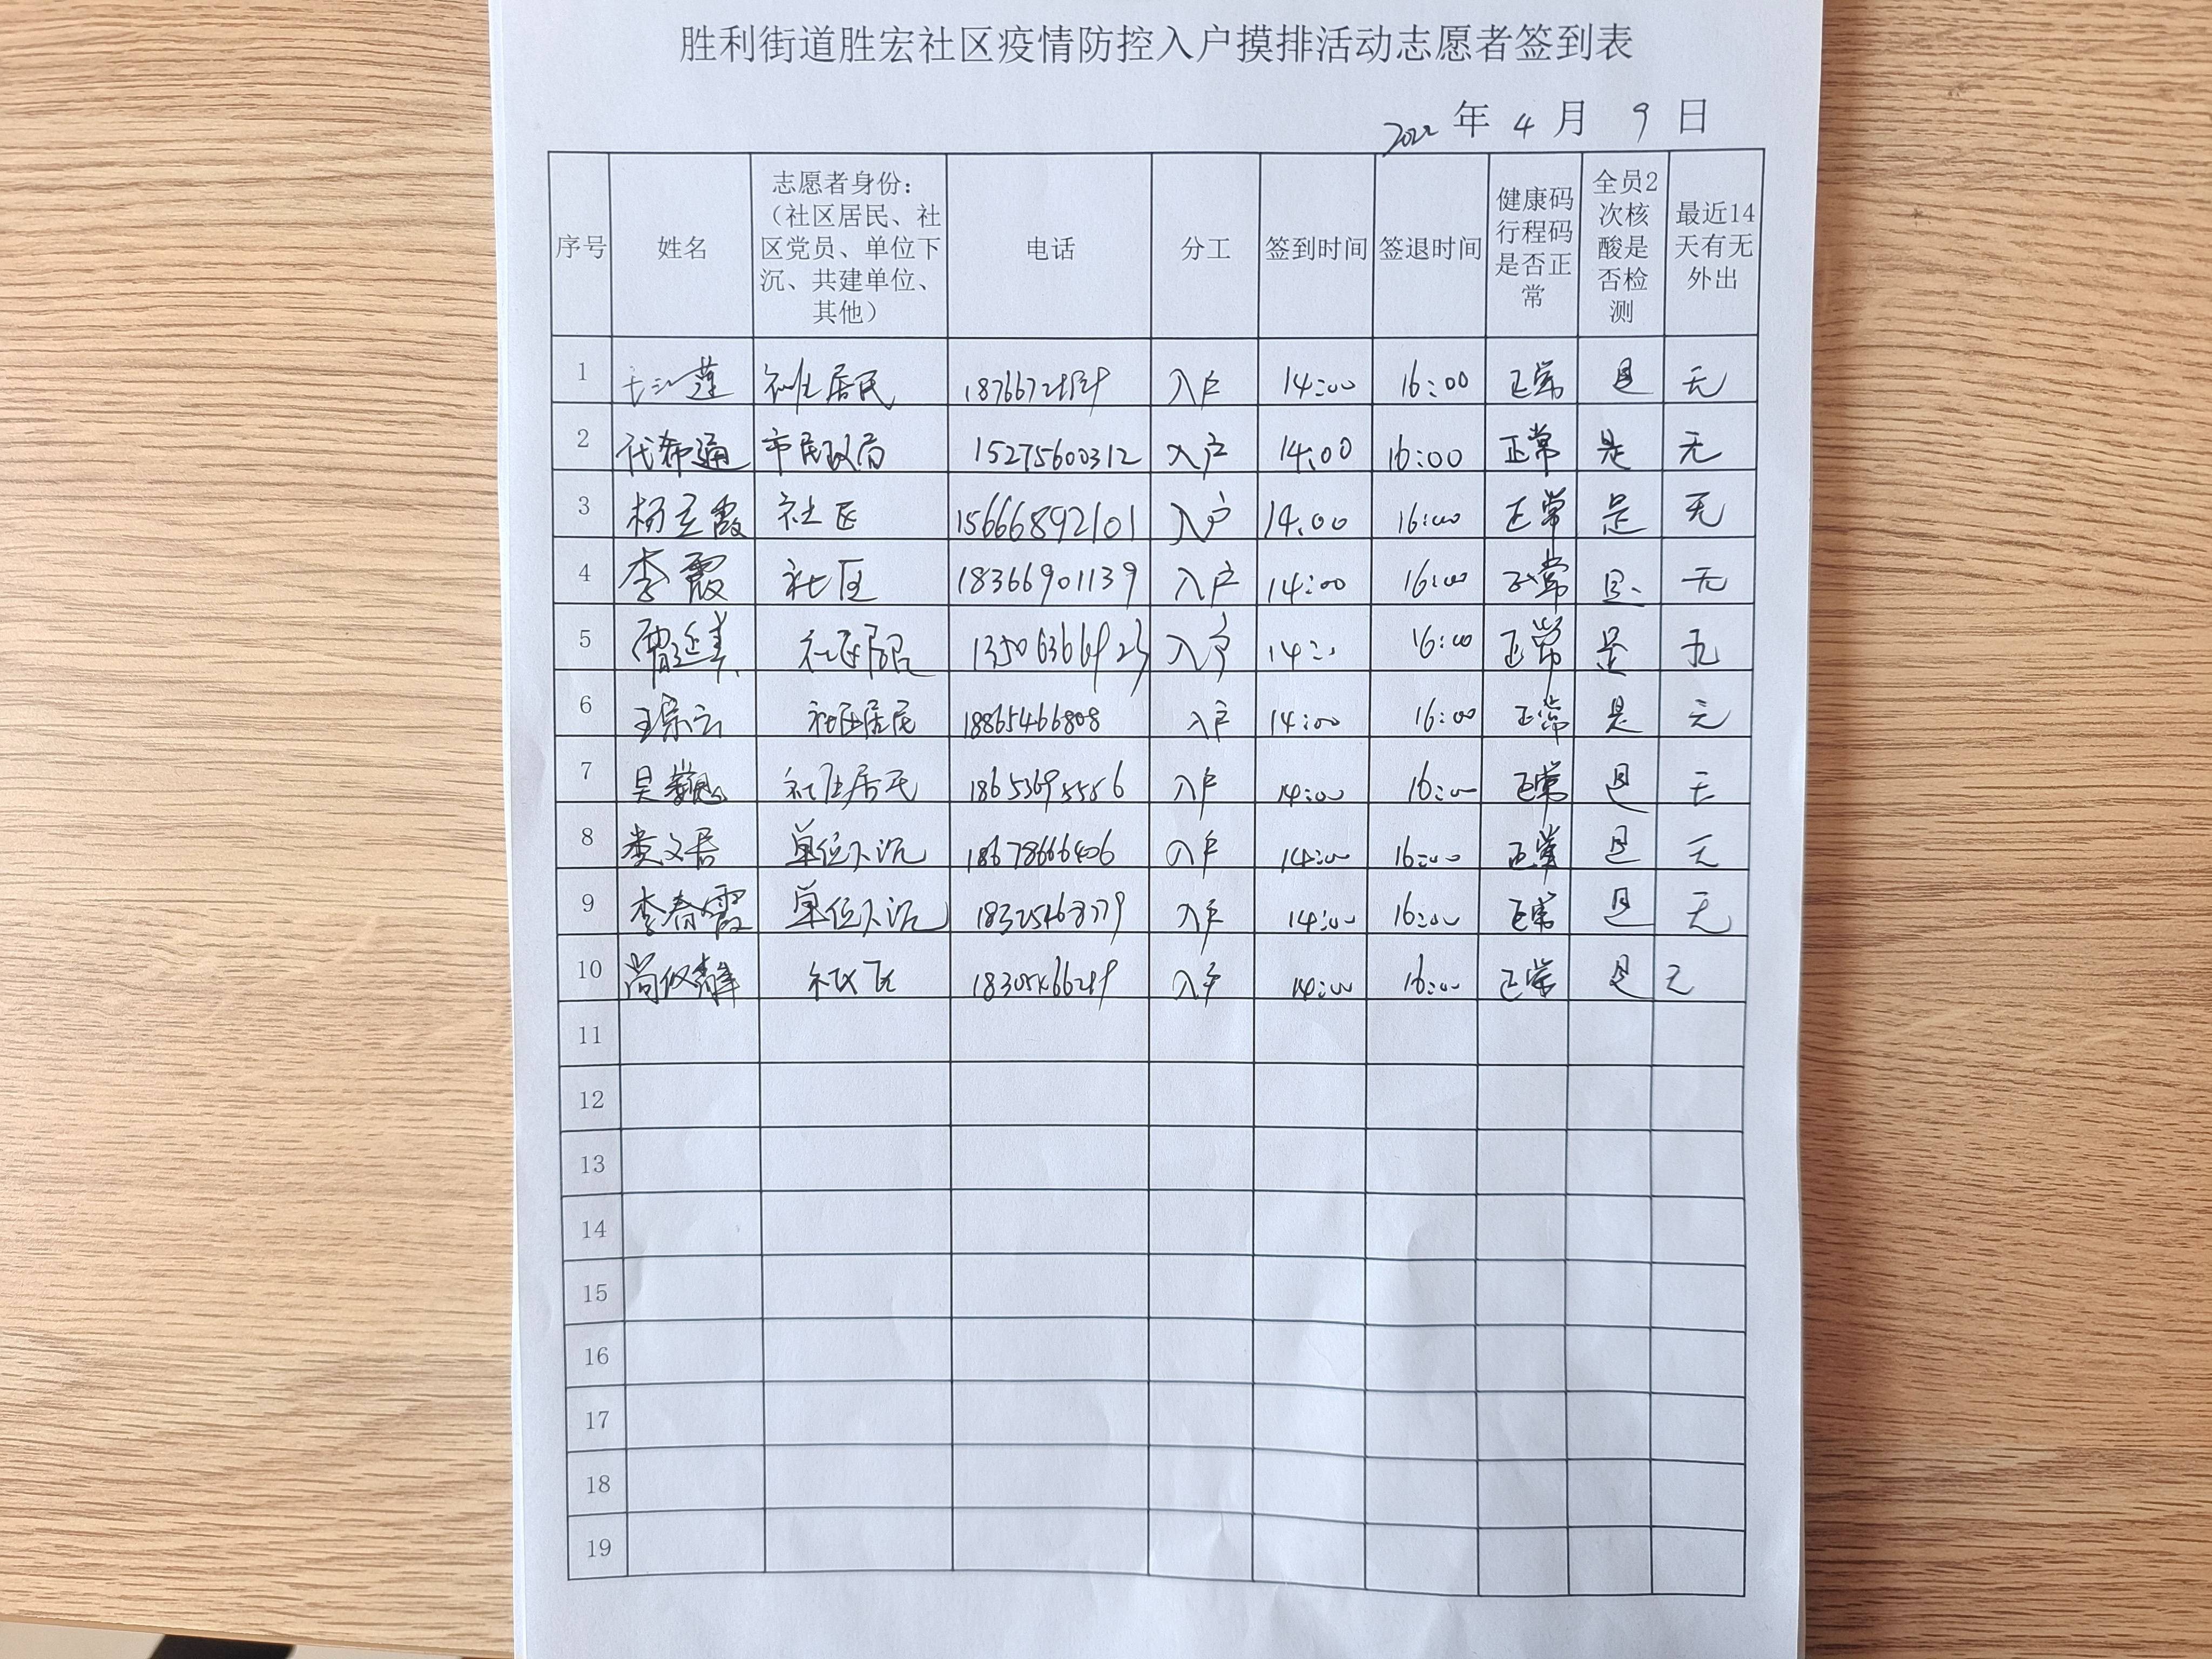 胜利街道胜宏社区疫情防控入户摸排活动志愿者签到表
2022 年 4 月 9 日
序号 姓名 志愿者身份：（社区居民、社区党员、单位下沉、共建单位、其他） 电话 分工 签到时间 签退时间 健康码行程码是否正常 全员2次核酸是否检测 最近14天有无外出
1 社区居民 入户 14:00 16:00 正常 是 无
2 代希通 市民政局 15275600312 入户 14:00 16:00 正常 是 无
3 杨立霞 社区 15666892101 入户 14:00 16:00 正常 是 无
4 李霞 社区 18366901139 入户 14:00 16:00 正常 是 无
5 社区居民 入户 16:00 正常 是 无
6 王宗云 社区居民 18865466808 入户 14:00 16:00 正常 是 无
7 社区居民 入户 14:00 16:00 正常 是 无
8 娄文君 单位下沉 18678666406 入户 14:00 16:00 正常 是 无
9 李春霞 单位下沉 入户 14:00 16:00 正常 是 无
10 社区 入户 14:00 16:00 正常 是 无
11
12
13
14
15
16
17
18
19